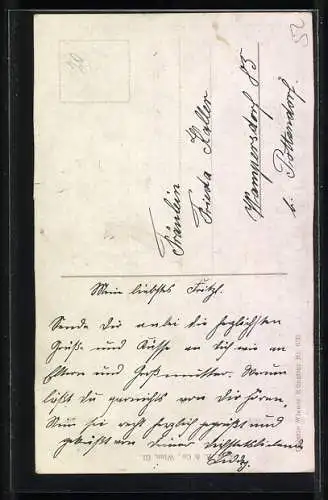 52
Fräulein
Frieda Haller
Wampersdorf 85
b. Pottendorf.
Mein liebstes Fritzl.
Sende Dir anbei die herzlichsten
Grüße und Küsse an Dich wie an
Eltern und Großmutter. Warum
läßt Du garnichts von Dir hören.
Nun sei recht herzlich gegrüßt und
geküßt von Deiner Dich
& Co., Wien, III.
Wiener Künstler Nr.